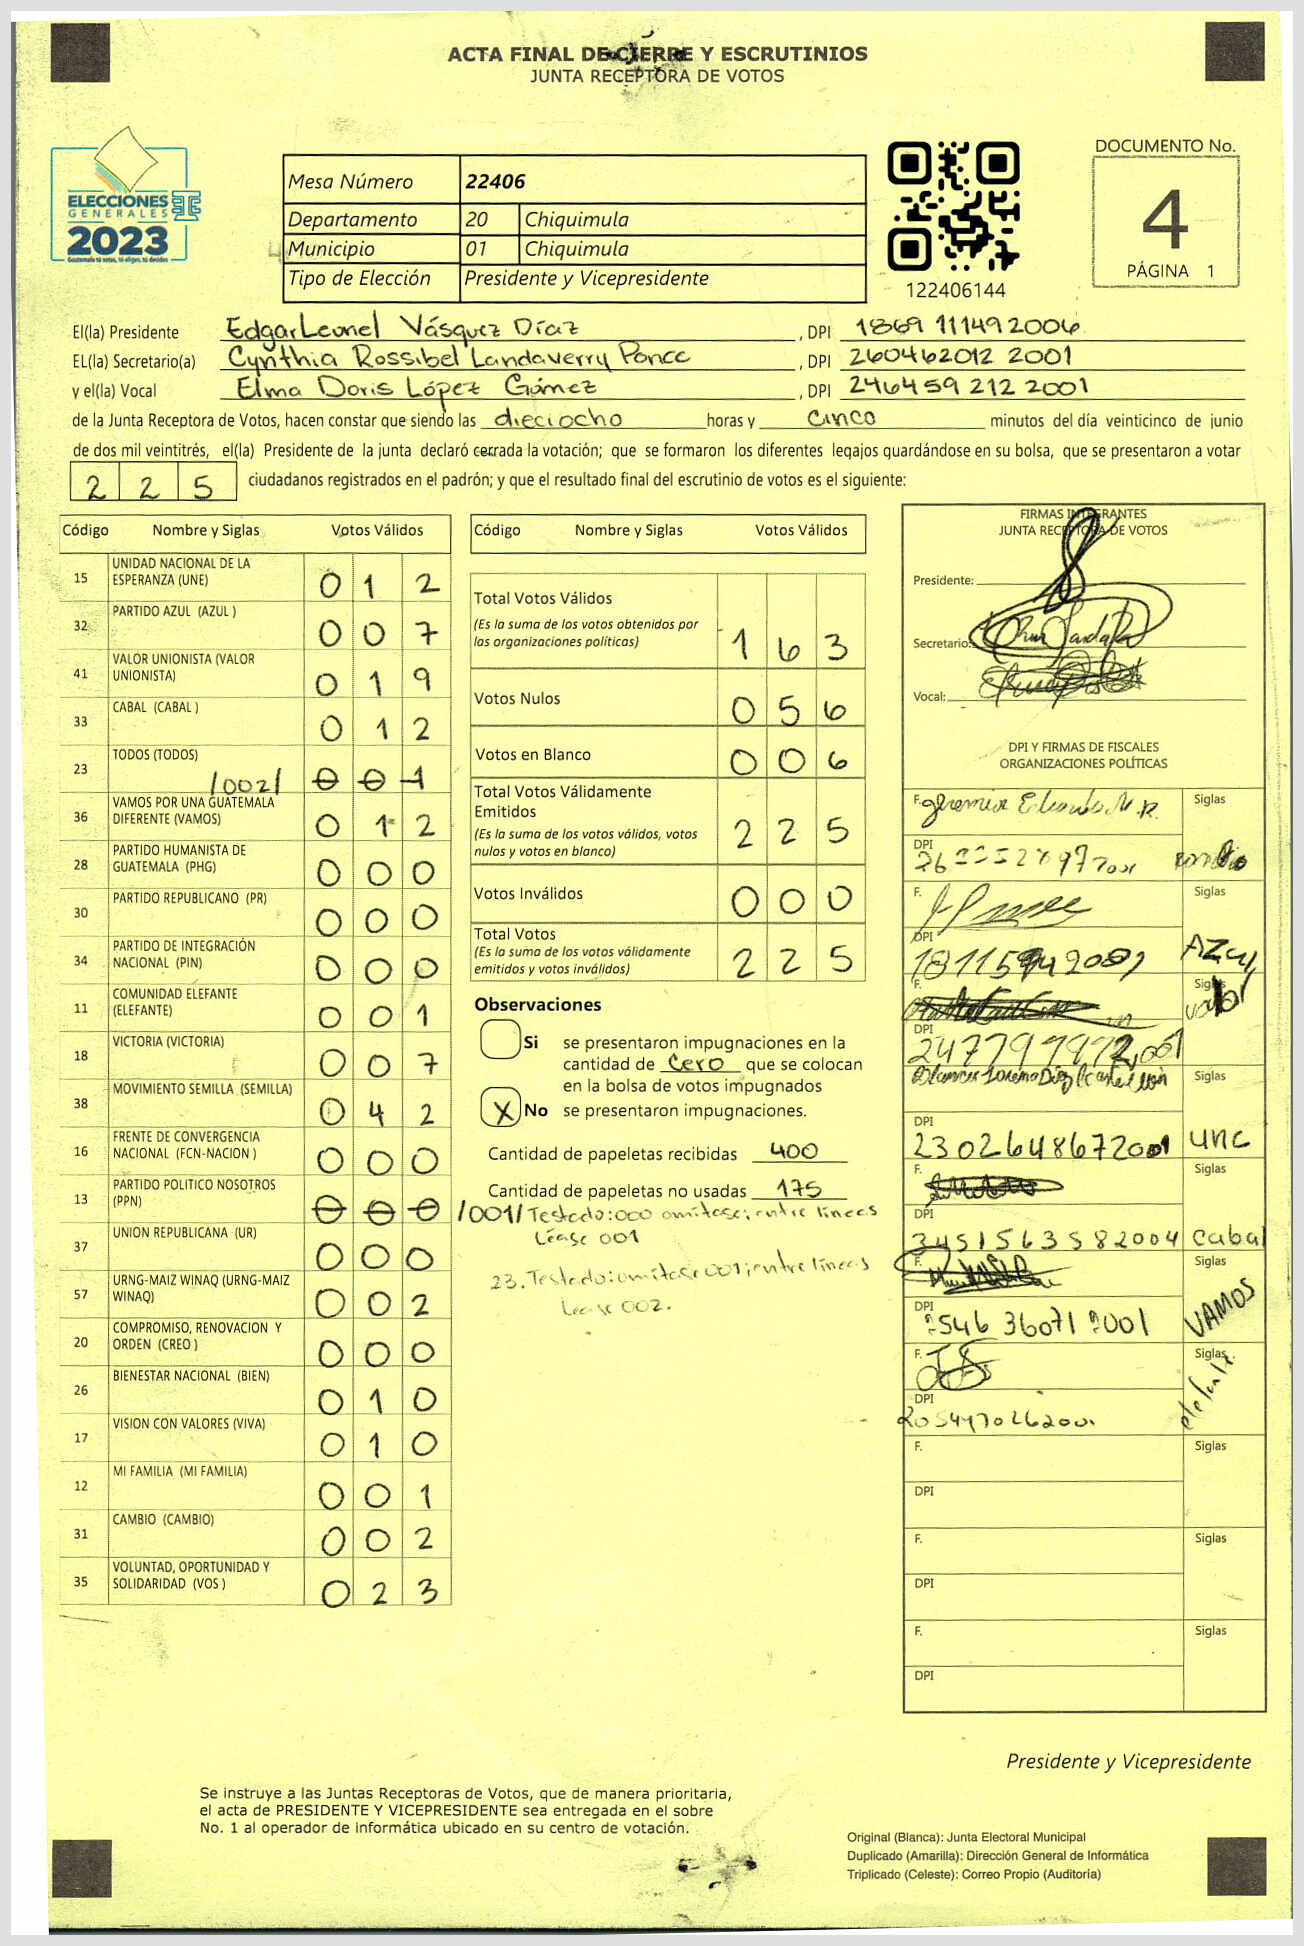 ACTA FINAL DE CIERRE Y ESCRUTINIOS
JUNTA RECEPTORA DE VOTOS
ELECCIONES
GENERALES
2023
Guatemala tú votas, tú eliges, tú decides
Mesa Número 22406
Departamento 20 Chiquimula
Municipio 01 Chiquimula
Tipo de Elección Presidente y Vicepresidente
122406144
DOCUMENTO No.
4
PÁGINA 1
El(la) Presidente Edgar Leonel Vásquez Díaz , DPI 1869 11149 2006
EL(la) Secretario(a) Cynthia Rossibel Landaverry Ponce , DPI 260462012 2001
y el(la) Vocal Elma Doris López Gómez , DPI 246459 212 2001
de la Junta Receptora de Votos, hacen constar que siendo las dieciocho horas y cinco minutos del día veinticinco de junio
de dos mil veintitrés, el(la) Presidente de la junta declaró cerrada la votación; que se formaron los diferentes legajos guardándose en su bolsa, que se presentaron a votar
2 2 5 ciudadanos registrados en el padrón; y que el resultado final del escrutinio de votos es el siguiente:
Código Nombre y Siglas Votos Válidos
15 UNIDAD NACIONAL DE LA ESPERANZA (UNE) 0 1 2
32 PARTIDO AZUL (AZUL ) 0 0 7
41 VALOR UNIONISTA (VALOR UNIONISTA) 0 1 9
33 CABAL (CABAL ) 0 1 2
23 TODOS (TODOS) /002/ 0 0 1
36 VAMOS POR UNA GUATEMALA DIFERENTE (VAMOS) 0 1 2
28 PARTIDO HUMANISTA DE GUATEMALA (PHG) 0 0 0
30 PARTIDO REPUBLICANO (PR) 0 0 0
34 PARTIDO DE INTEGRACIÓN NACIONAL (PIN) 0 0 0
11 COMUNIDAD ELEFANTE (ELEFANTE) 0 0 1
18 VICTORIA (VICTORIA) 0 0 7
38 MOVIMIENTO SEMILLA (SEMILLA) 0 4 2
16 FRENTE DE CONVERGENCIA NACIONAL (FCN-NACION ) 0 0 0
13 PARTIDO POLITICO NOSOTROS (PPN) 0 0 0
37 UNION REPUBLICANA (UR) 0 0 0
57 URNG-MAIZ WINAQ (URNG-MAIZ WINAQ) 0 0 2
20 COMPROMISO, RENOVACION Y ORDEN (CREO ) 0 0 0
26 BIENESTAR NACIONAL (BIEN) 0 1 0
17 VISION CON VALORES (VIVA) 0 1 0
12 MI FAMILIA (MI FAMILIA) 0 0 1
31 CAMBIO (CAMBIO) 0 0 2
35 VOLUNTAD, OPORTUNIDAD Y SOLIDARIDAD (VOS ) 0 2 3
Código Nombre y Siglas Votos Válidos
Total Votos Válidos
(Es la suma de los votos obtenidos por las organizaciones políticas) 1 6 3
Votos Nulos 0 5 6
Votos en Blanco 0 0 6
Total Votos Válidamente Emitidos
(Es la suma de los votos válidos, votos nulos y votos en blanco) 2 2 5
Votos Inválidos 0 0 0
Total Votos
(Es la suma de los votos válidamente emitidos y votos inválidos) 2 2 5
Observaciones
Si se presentaron impugnaciones en la
cantidad de cero que se colocan
en la bolsa de votos impugnados
X No se presentaron impugnaciones.
Cantidad de papeletas recibidas 400
Cantidad de papeletas no usadas 175
/001/ Testado:000 omitase; entre lineas
Léase 001
23. Testado: omitase 001; entre lineas
Lease 002.
FIRMAS INTEGRANTES
JUNTA RECEPTORA DE VOTOS
Presidente:
Secretario:
Vocal:
DPI Y FIRMAS DE FISCALES
ORGANIZACIONES POLÍTICAS
F. Siglas
DPI
F. Siglas
DPI AZUL
F. Siglas
DPI valor
Siglas
DPI 2302648672001 UNE
F. Siglas
DPI 3451563582004 Cabal
F. Siglas
DPI VAMOS
F. Siglas
DPI elefante
F. Siglas
DPI
F. Siglas
DPI
F. Siglas
DPI
Presidente y Vicepresidente
Se instruye a las Juntas Receptoras de Votos, que de manera prioritaria,
el acta de PRESIDENTE Y VICEPRESIDENTE sea entregada en el sobre
No. 1 al operador de informática ubicado en su centro de votación.
Original (Blanca): Junta Electoral Municipal
Duplicado (Amarilla): Dirección General de Informática
Triplicado (Celeste): Correo Propio (Auditoría)